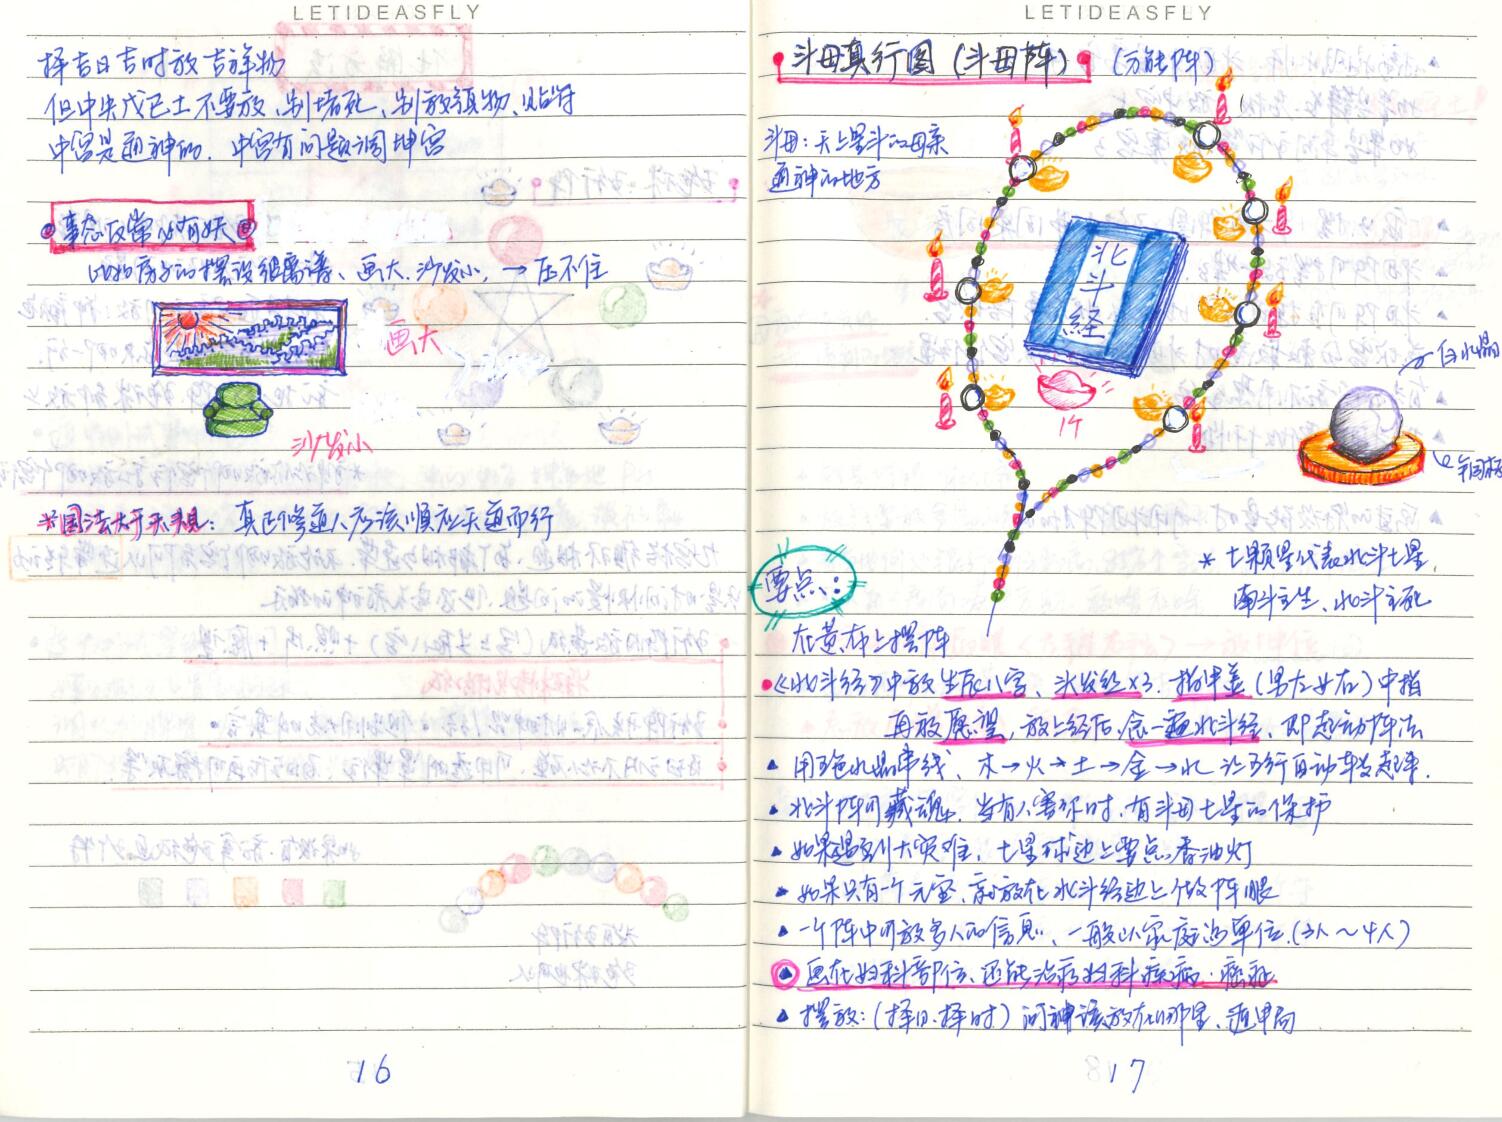 LETIDEASFLY
择吉日吉时放吉祥物
但中央戊己土不要放、别堵死、别放镇物、贴符
中宫是通神的. 中宫有问题调坤宫
事态反常必有妖
比如房子的摆设很离谱、画大、沙发小, → 压不住
画大
沙发小
*国法大于天:
真正修道人应该顺应天道而行
16
LETIDEASFLY
斗母真行图(斗母阵) (万能阵)
斗母:天上星斗的母亲
通神的地方
北斗经
1个
白水晶
*七颗星代表北斗七星,
南斗主生、北斗主死
要点:
在黄布上摆阵
《北斗经》中放生辰八字、头发丝×3. 指甲盖(男左女右)中指
再放愿望,放上经后,念一遍北斗经,即起动阵法
用五色水晶串线、木→火→土→金→水 让五行自动转起来.
北斗阵可藏魂. 当有人害你时,有斗母七星的保护
如果遇到大灾难, 七星球边上要点香油灯
如果只有一个元宝,就放在北斗经边上做阵眼
一个阵中可放多人的信息、一般以家庭为单位.(3人~4人)
画在妇科部位、还能治疗妇科疾病·癌症
摆放:(择日、择时)问神该放在哪里、遁甲局
17